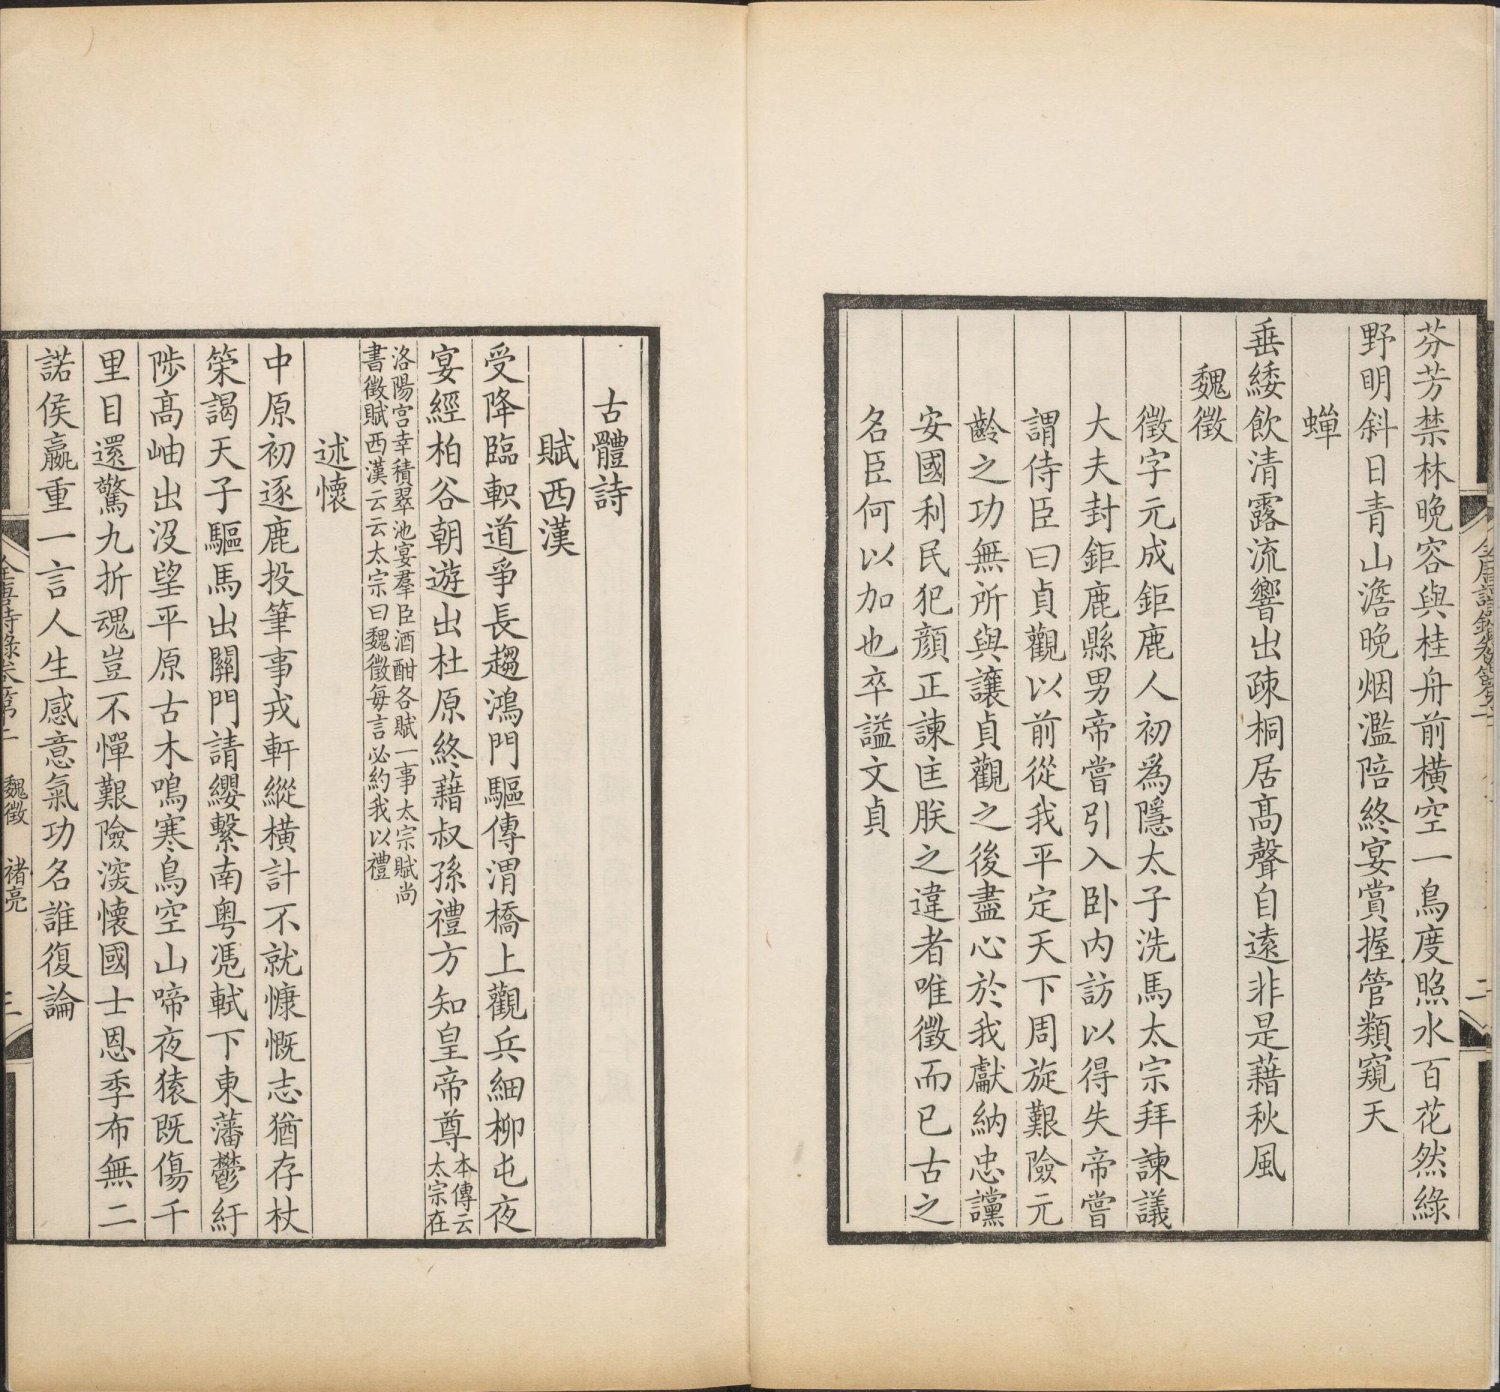 芬芳禁林晚容與桂舟前橫空一鳥度照水百花然綠
野明斜日青山澹晚烟濫陪終宴賞握管類窺天
蟬
垂緌飲清露流響出疎桐居高聲自遠非是藉秋風
魏徵
徵字元成鉅鹿人初爲隱太子洗馬太宗拜諫議
大夫封鉅鹿縣男帝嘗引入卧内訪以得失帝嘗
謂侍臣曰貞觀以前從我平定天下周旋艱險元
齡之功無所與讓貞觀之後盡心於我獻納忠讜
安國利民犯顏正諫匡朕之違者唯徵而已古之
名臣何以加也卒謚文貞
古體詩
賦西漢
受降臨軹道爭長趨鴻門驅傳渭橋上觀兵細柳屯夜
宴經柏谷朝遊出杜原終藉叔孫禮方知皇帝尊本傳云
太宗在
洛陽宮幸積翠池宴羣臣酒酣各賦一事太宗賦尚
書徵賦西漢云云太宗曰魏徵每言必約我以禮
述懷
中原初逐鹿投筆事戎軒縱橫計不就慷慨志猶存杖
策謁天子驅馬出關門請纓繫南粵憑軾下東藩鬱紆
陟高岫出沒望平原古木鳴寒鳥空山啼夜猿既傷千
里目還驚九折魂豈不憚艱險深懷國士恩季布無二
諾侯嬴重一言人生感意氣功名誰復論
全唐詩錄卷第二 魏徵 褚亮 三